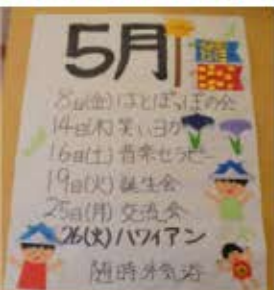 5月
8日(金)はとぽっぽの会
14日(木)笑いヨガ
16日(土)音楽セラピー
19日(火)誕生会
25日(月)交流会
26(火)ハワイアン
随時外気浴